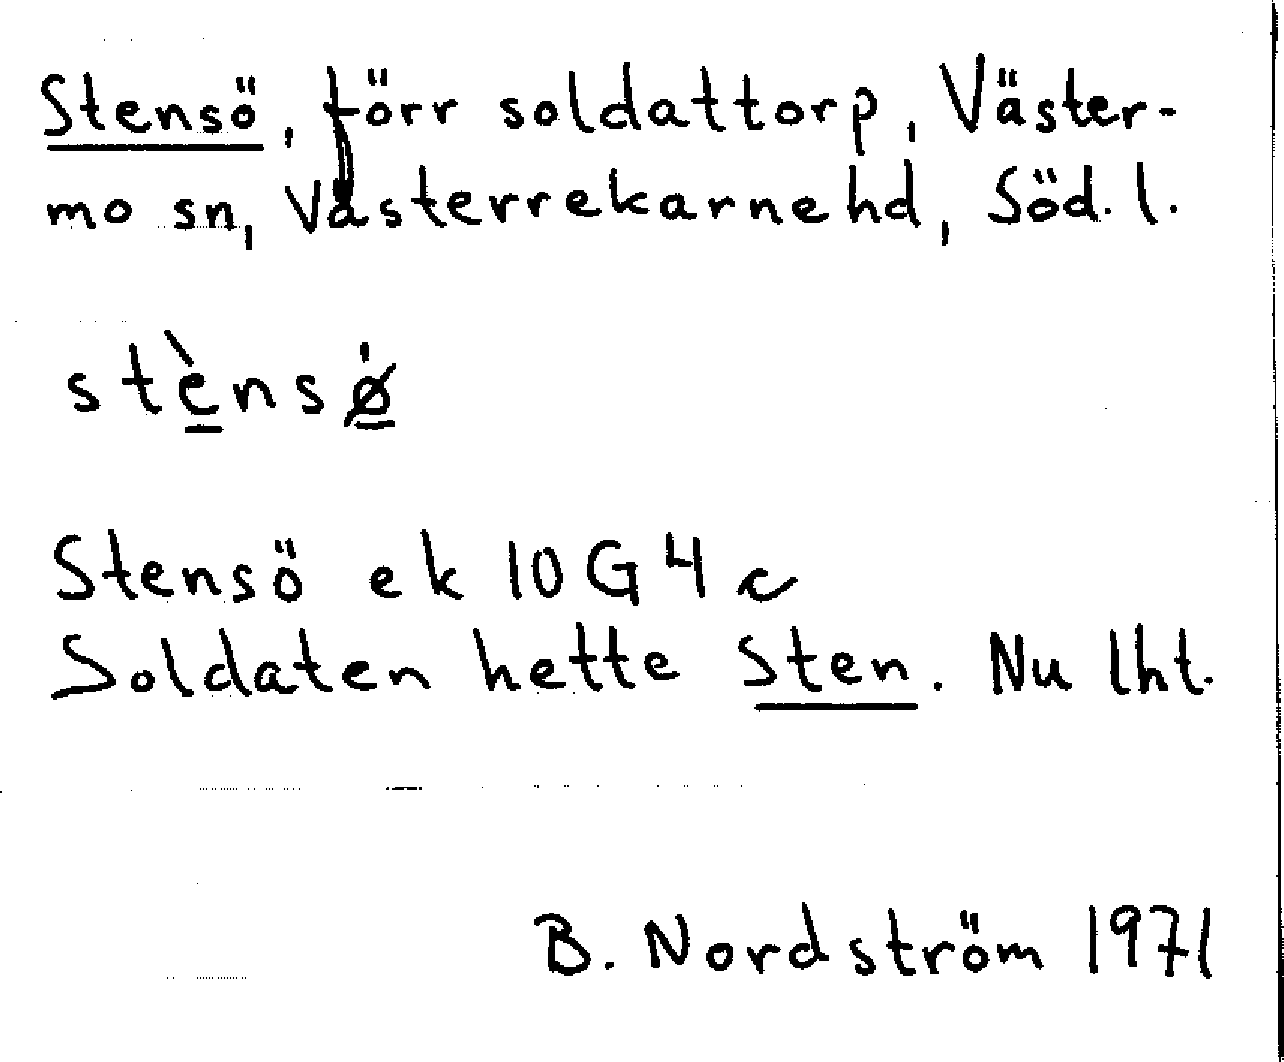 Stensö, förr soldattorp, Väster-
mo sn, Västerrekarnehd, Söd. l.
stè̲nsø̲̇
Stensö ek 10 G 4 c
Soldaten hette Sten. Nu lht.
B. Nordström 1971